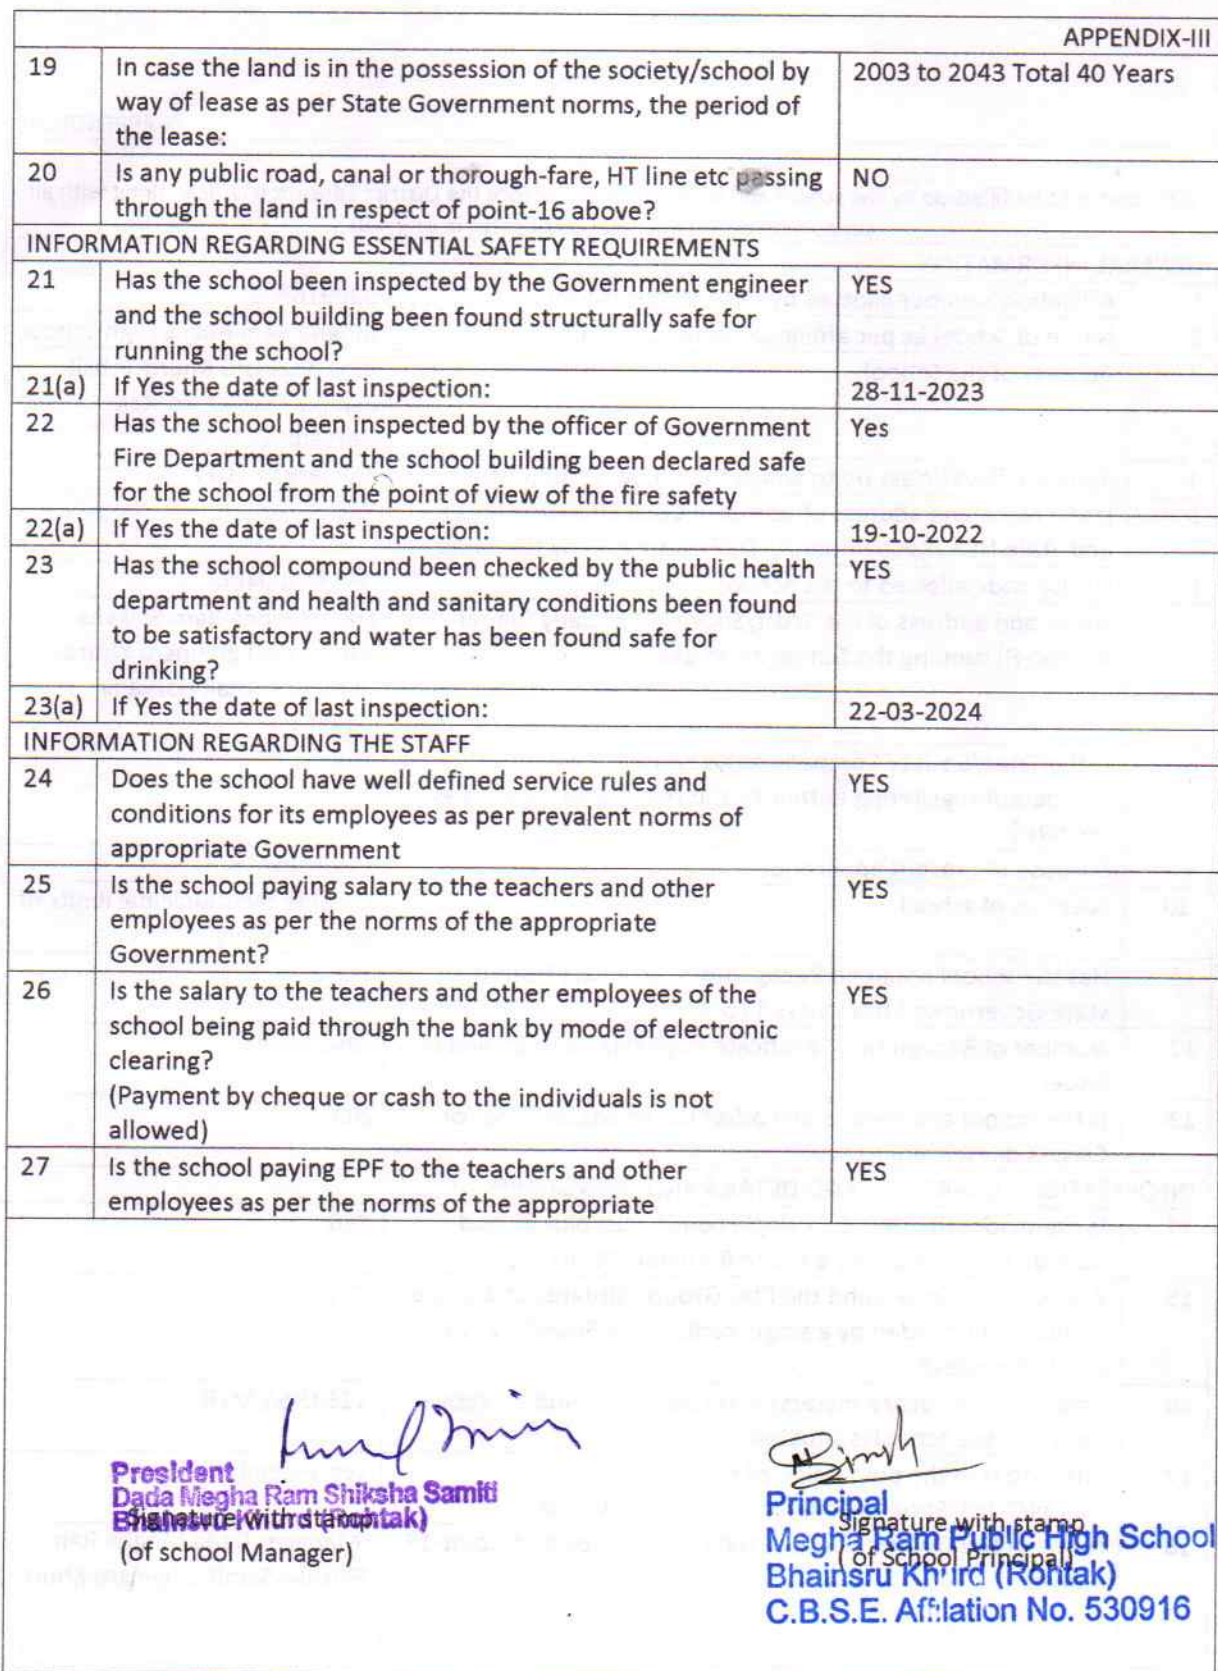 APPENDIX-III
19 In case the land is in the possession of the society/school by 2003 to 2043 Total 40 Years
way of lease as per State Government norms, the period of
the lease:
20 Is any public road, canal or thorough-fare, HT line etc passing NO
through the land in respect of point-16 above?
INFORMATION REGARDING ESSENTIAL SAFETY REQUIREMENTS
21 Has the school been inspected by the Government engineer YES
and the school building been found structurally safe for
running the school?
21(a) If Yes the date of last inspection: 28-11-2023
22 Has the school been inspected by the officer of Government Yes
Fire Department and the school building been declared safe
for the school from the point of view of the fire safety
22(a) If Yes the date of last inspection: 19-10-2022
23 Has the school compound been checked by the public health YES
department and health and sanitary conditions been found
to be satisfactory and water has been found safe for
drinking?
23(a) If Yes the date of last inspection: 22-03-2024
INFORMATION REGARDING THE STAFF
24 Does the school have well defined service rules and YES
conditions for its employees as per prevalent norms of
appropriate Government
25 Is the school paying salary to the teachers and other YES
employees as per the norms of the appropriate
Government?
26 Is the salary to the teachers and other employees of the YES
school being paid through the bank by mode of electronic
clearing?
(Payment by cheque or cash to the individuals is not
allowed)
27 Is the school paying EPF to the teachers and other YES
employees as per the norms of the appropriate
President
Dada Megha Ram Shiksha Samiti
Bhainsru Khurd (Rohtak)
Signature with stamp
(of school Manager)
Singh
Principal
Signature with stamp
Megha Ram Public High School
( of School Principal)
Bhainsru Kh'ird (Rohtak)
C.B.S.E. Affilation No. 530916